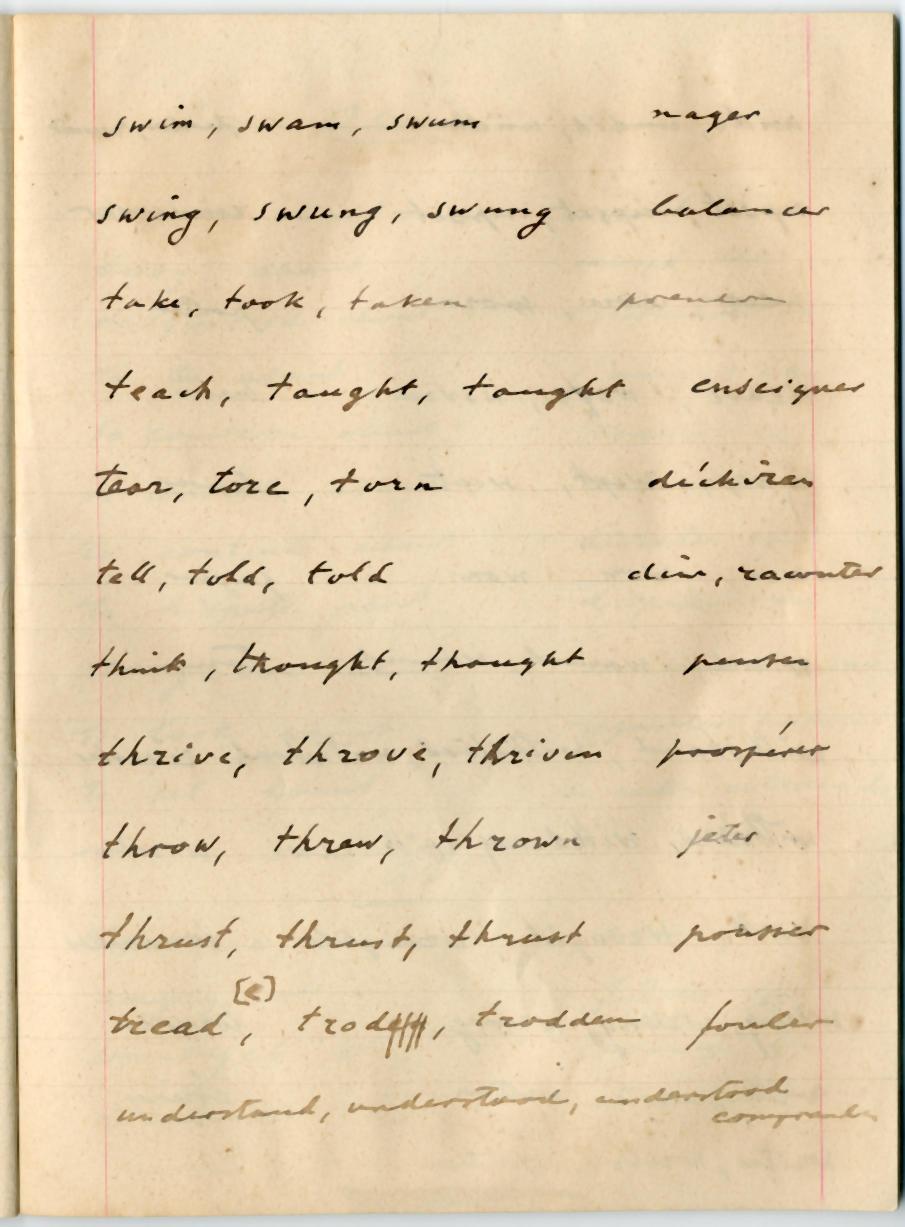 swim, swam, swum nager
swing, swung, swung balancer
take, took, taken prendre
teach, taught, taught enseigner
tear, tore, torn déchirer
tell, told, told dire, raconter
think, thought, thought penser
thrive, throve, thriven prospérer
throw, threw, thrown jeter
thrust, thrust, thrust pousser
[e]
tread, trod, trodden fouler
understand, understood, understood
comprendre